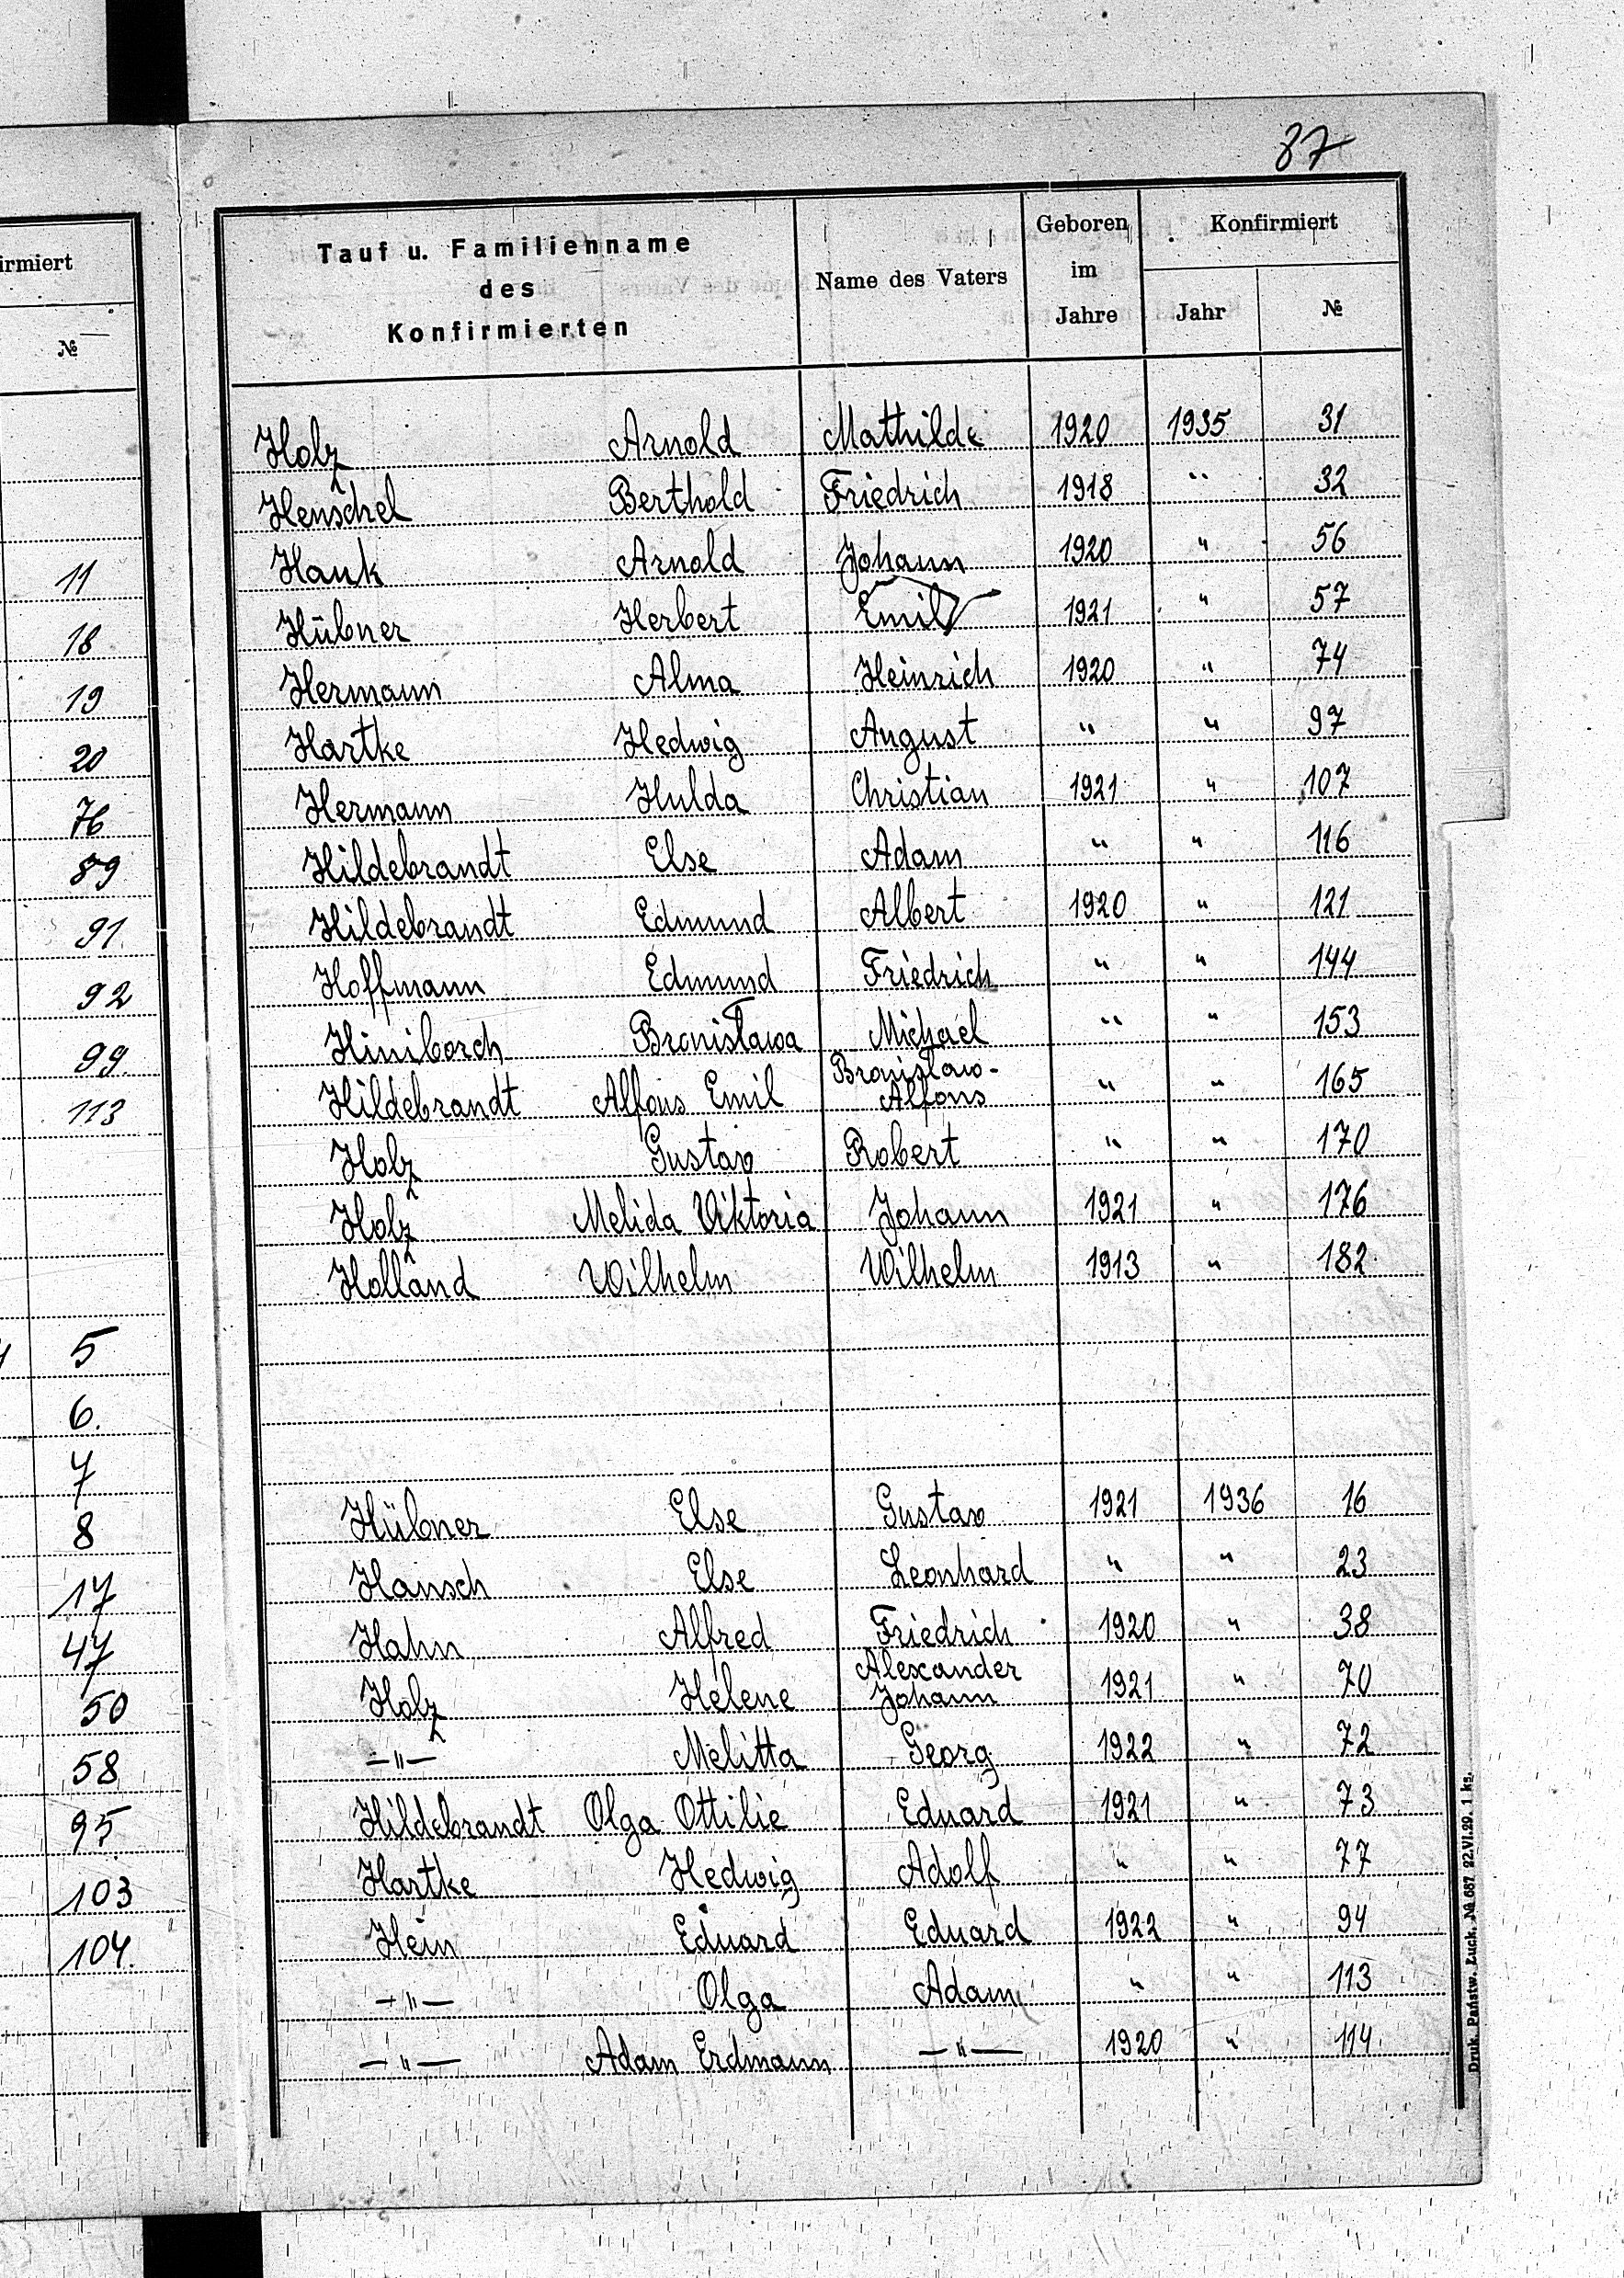 87
irmiert
№
11
18
19
20
76
89
91.
92
99.
113
5
6.
7
8
17
47
50
58
95
103
104.
Tauf u. Familienname
des
Konfirmierten
Name des Vaters
Geboren
im
Jahre
Konfirmiert
Jahr
№
Holz Arnold Mathilde 1920 1935 31
Henschel Berthold Friedrich 1918 " 32
Hauk Arnold Johann 1920 " 56
Hübner Herbert Emil 1921 " 57
Hermann Alma Heinrich 1920 " 74
Hartke Hedwig August " " 97
Hermann Hulda Christian 1921 " 107
Hildebrandt Else Adam " " 116
Hildebrandt Edmund Albert 1920 " 121
Hoffmann Edmund Friedrich " " 144
Hiniborch Bronisława Michael " " 153
Hildebrandt Alfons Emil Bronisław-
Alfons " " 165
Holz Gustav Robert " " 170
Holz Melida Viktoria Johann 1921 " 176
Holland Wilhelm Wilhelm 1913 " 182
Hübner Else Gustav 1921 1936 16
Hansch Else Leonhard " " 23
Hahn Alfred Friedrich 1920 " 38
Holz Helene Alexander
Johann 1921 " 70
—"— Melitta Georg 1922 " 72
Hildebrandt Olga Ottilie Eduard 1921 " 73
Hartke Hedwig Adolf " " 77
Hein Eduard Eduard 1922 " 94
—"— Olga Adam " " 113
—"— Adam Erdmann —"— 1920 " 114.
Druk. Państw. Łuck. № 687 22.VI.29. 1 ks.